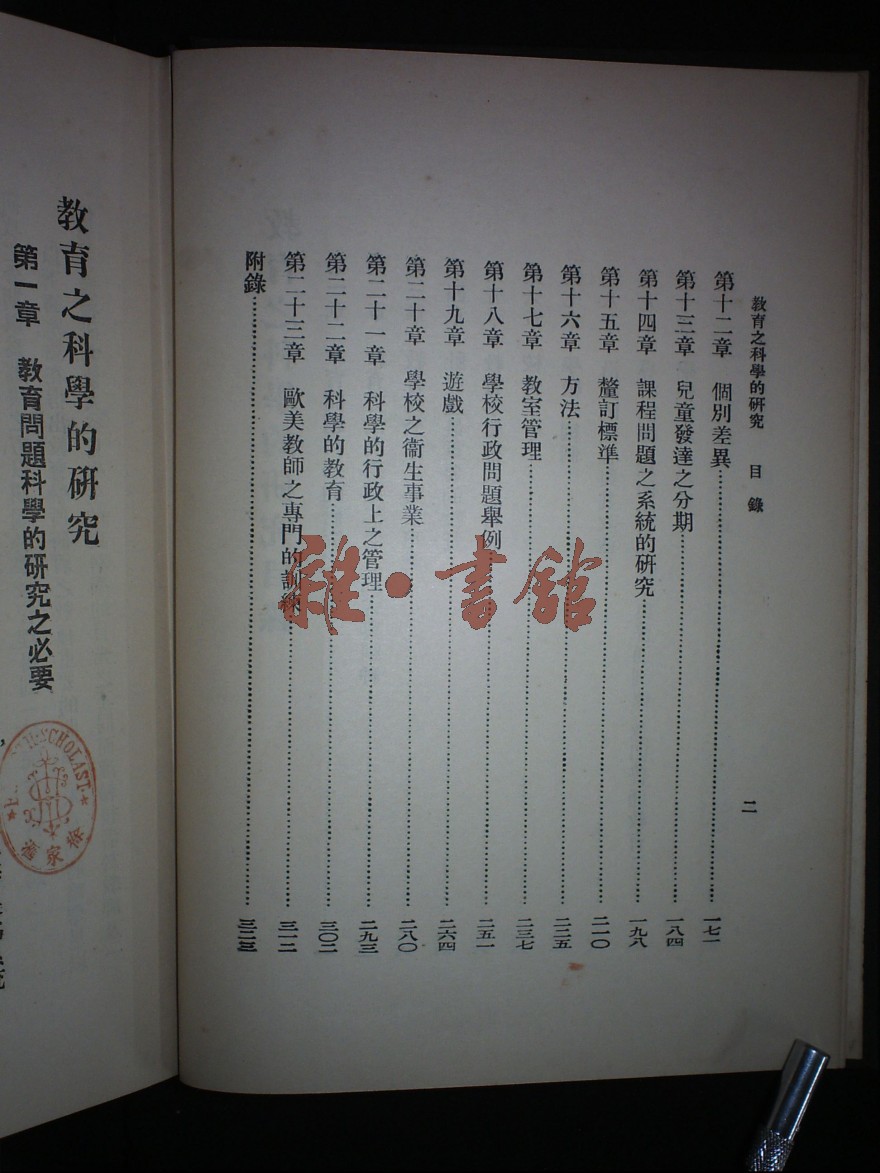 教育之科學的研究 目錄 二
第十二章 個別差異 一七一
第十三章 兒童發達之分期 一八四
第十四章 課程問題之系統的研究 一九八
第十五章 釐訂標準 二一〇
第十六章 方法 二二五
第十七章 教室管理 二三七
第十八章 學校行政問題舉例 二五一
第十九章 遊戲 二六四
第二十章 學校之衞生事業 二八〇
第二十一章 科學的行政上之管理 二九三
第二十二章 科學的教育 三〇二
第二十三章 歐美教師之專門的訓練 三一二
附錄 三二三
教育之科學的研究
第一章 教育問題科學的研究之必要
雜·書館
SCHOLAST